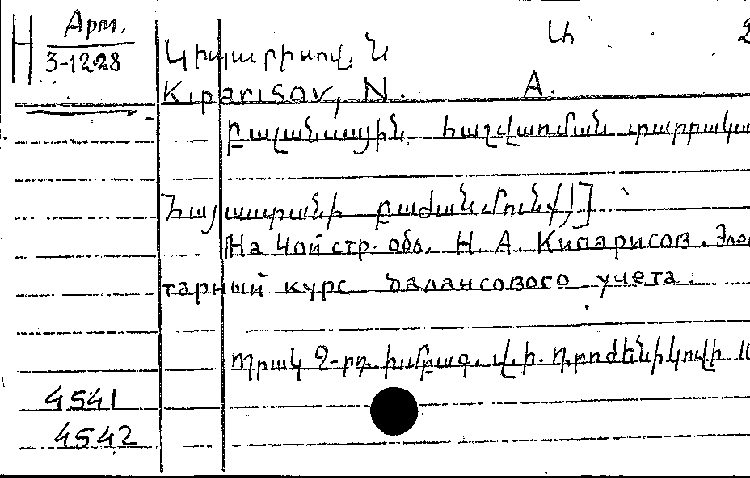 Н Арт.
3-12-28
Կիպարիսով, Ն Ա
Kiparisov, N. A.
բալանսային հաշվառման տարրական
Հայաստանի բաժանմունք)]
[На 4ой стр. обл. Н. А. Кипарисов. Элемен
тарный курс балансового учета.
Պրակ 2-րդ. խմբագ. վ.ի.
4541
4542